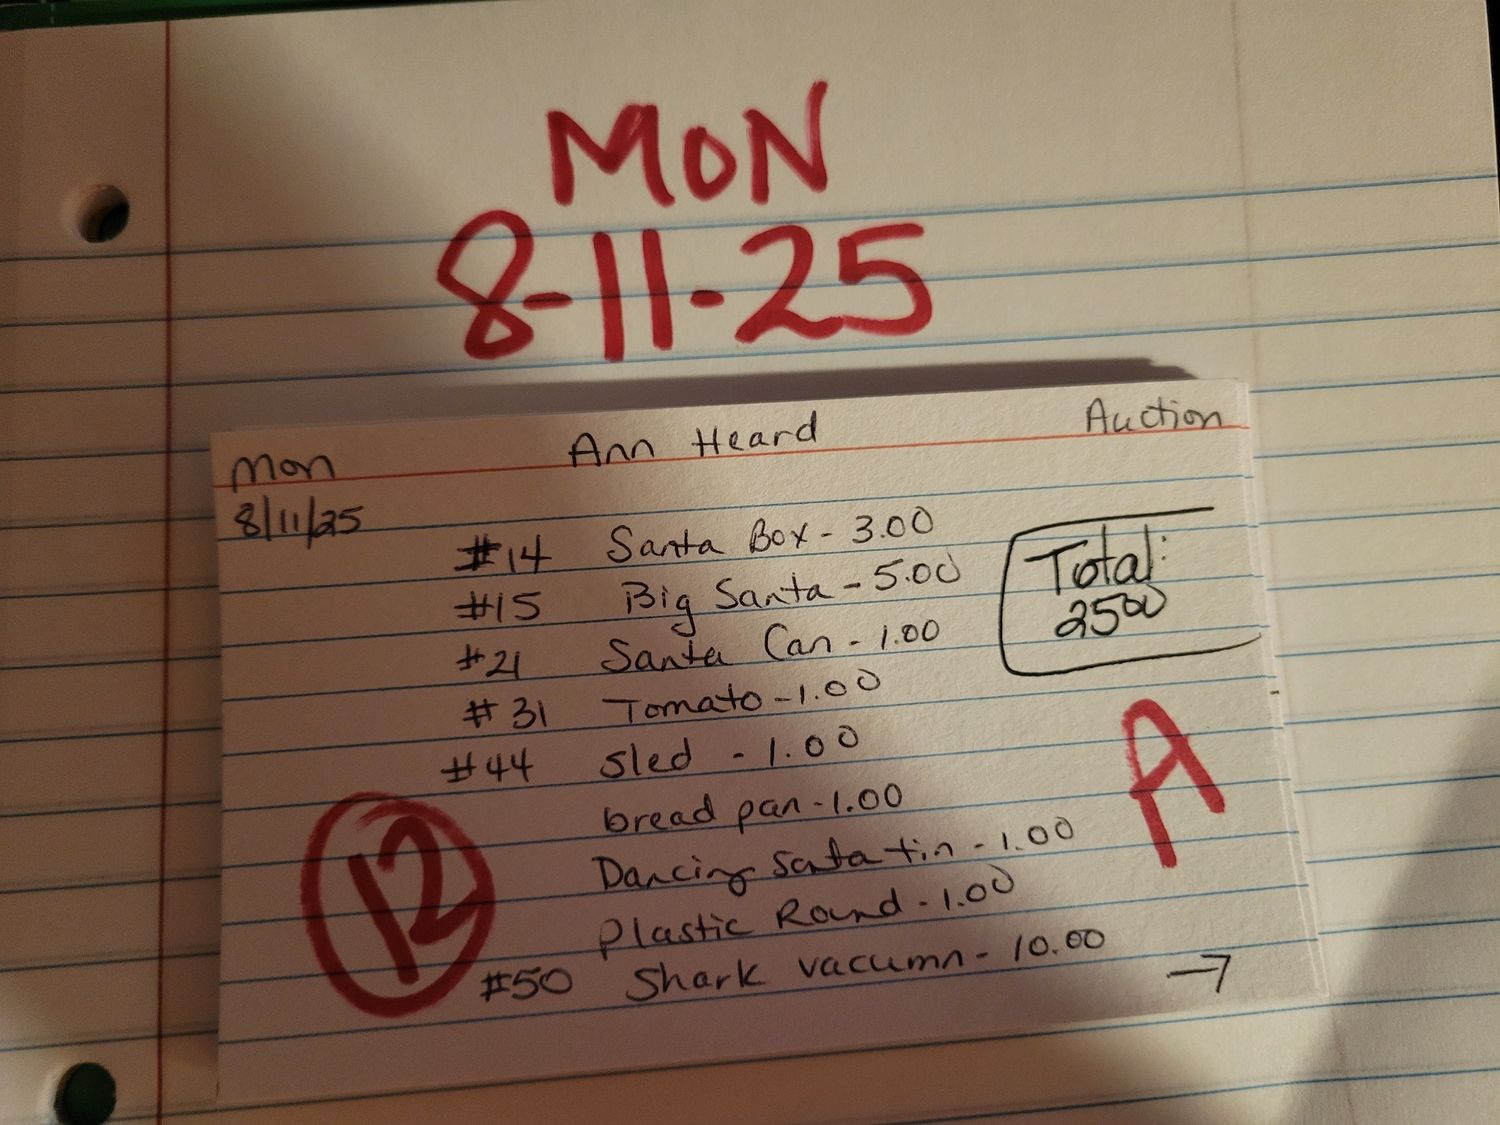 MON
8-11-25
Mon Ann Heard Auction
8/11/25
#14 Santa Box - 3.00
#15 Big Santa - 5.00
#21 Santa Can - 1.00
#31 Tomato - 1.00
#44 sled - 1.00
bread pan - 1.00
Dancing Santa tin - 1.00
Plastic Round - 1.00
#50 Shark vacumn - 10.00
Total:
2500
A
12
→